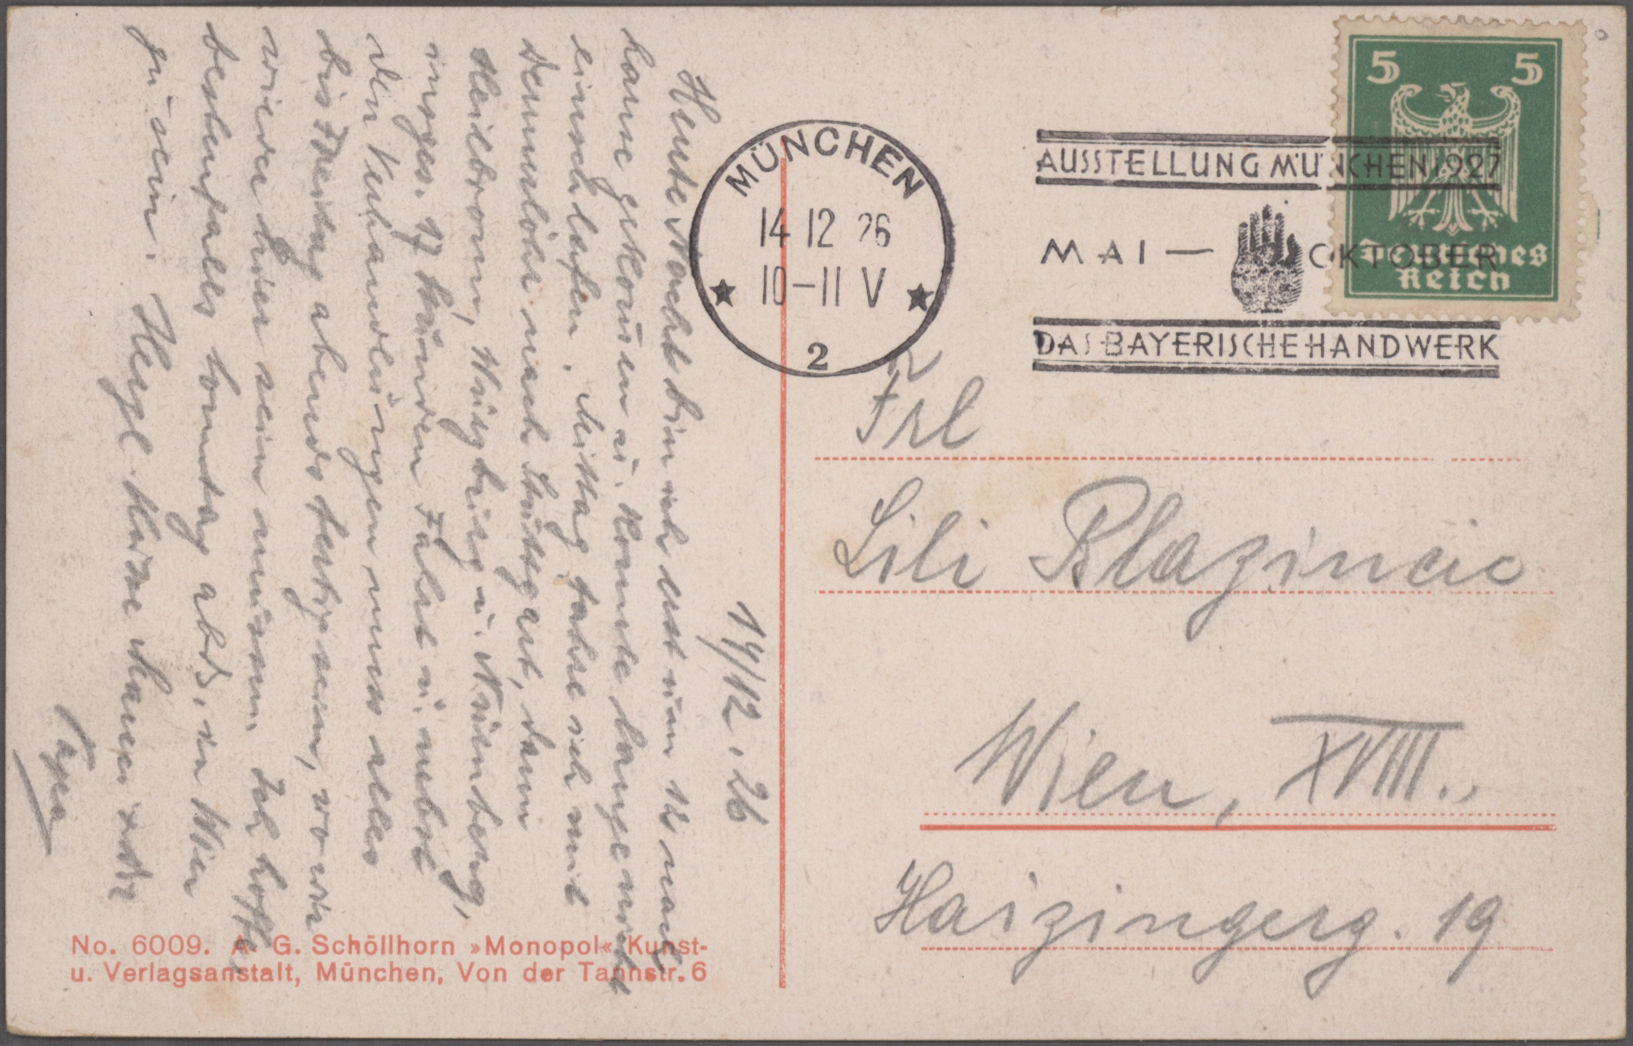 14/12.26
Heute Nacht bin ich erst um 12 nach
hause gekommen u. konnte lange nicht
einschlafen. Mittag fahre ich mit
Demmelöhr nach Stuttgart, dann
Heilbronn, Würzburg u. Nürnberg,
insges. 17 Stunden Fahrt u. nebst
den Verhandlungen muss alles
bis Freitag abends fertig sein, wo wir
wieder hier sein müssen. Ich hoffe
bestenfalls Sonntag abds. in Wien
zu sein. Herzl
Papa
MÜNCHEN
14 12 26
10-11 V
2
AUSSTELLUNG MÜNCHEN 1927
MAI — OKTOBER
DAS BAYERISCHE HANDWERK
5 5
Deutsches
Reich
Frl
Lili Blazincic
Wien, XVIII.,
Haizingerg. 19
No. 6009. A. G. Schöllhorn »Monopol« Kunst-
u. Verlagsanstalt, München, Von der Tannstr. 6